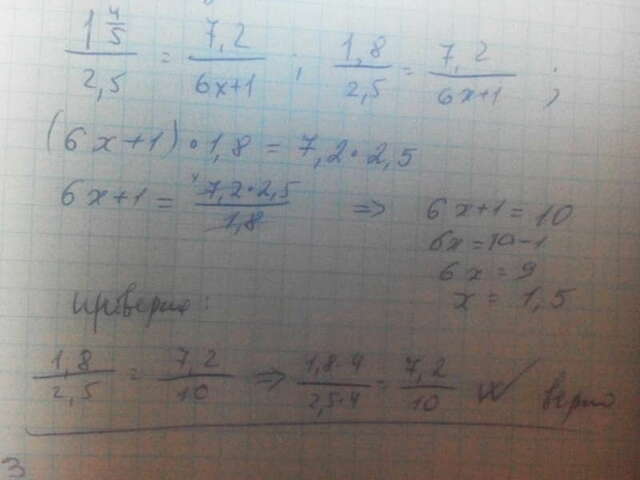 1 4/5 / 2,5 = 7,2 / 6x+1 ; 1,8 / 2,5 = 7,2 / 6x+1 ;
(6x+1)·1,8 = 7,2·2,5
6x+1 = 7,2·2,5 / 1,8 => 6x+1 = 10
6x = 10-1
6x = 9
x = 1,5
проверка:
1,8 / 2,5 = 7,2 / 10 => 1,8·4 / 2,5·4 = 7,2 / 10 верно
3